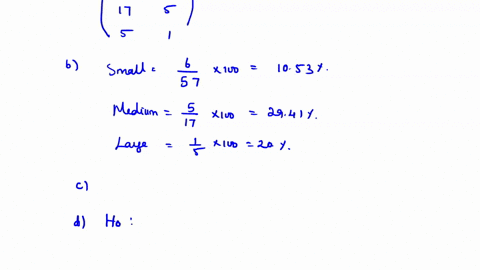 17 5
5 1
b) Small = 6/57 ×100 = 10.53 %.
Medium = 5/17 ×100 = 29.41 %.
Laye = 1/5 ×100 = 20 %.
c)
d) Ho :